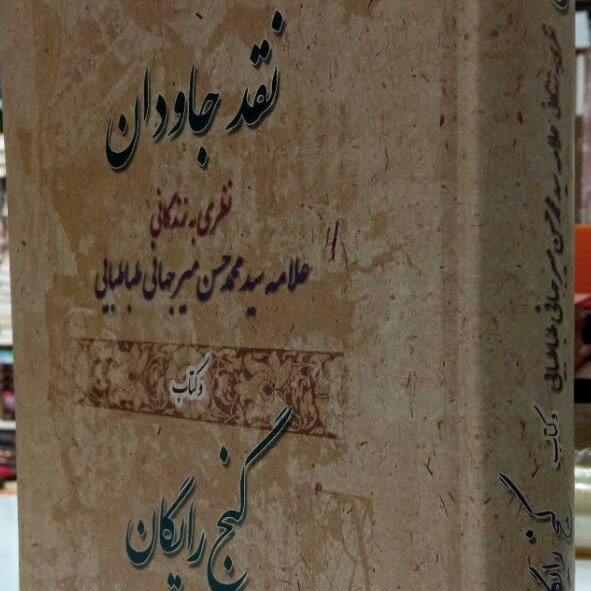 نقد جاودان
نظری به زندگانی
علامه سید محمد حسن میرجهانی طباطبایی
و کتاب
گنج رایگان
نظری به زندگانی علامه سید محمد حسن میرجهانی طباطبایی
و کتاب
گنج رایگان